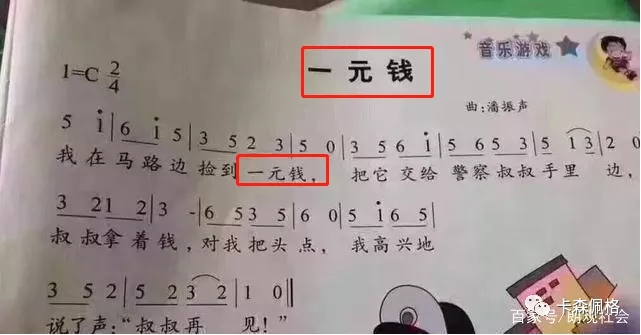 音乐游戏
一元钱
1=C 2/4
曲:潘振声
5 i|6 i 5|3 5 2 3|5 0|3 5 6 i|5 6 6 5|5 1 3|2
我在马路边捡到一元钱， 把它交给警察叔叔手里 边，
3 2 1 2|3 -|6 5 3 5|6 0|5 i 6 5|
叔叔拿着钱，对我把头点， 我高兴地
3 5 2|5 2 3 2|1 0‖
说了声：“叔叔再 见！”
卡森佩格
百家号/萌观社会